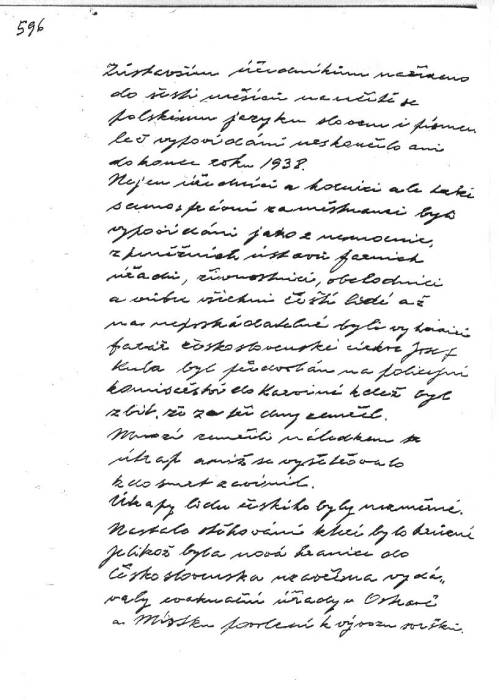 596
Zůstavším úředníkům nařízeno
do šesti měsíců naučiti se
polskému jazyku slovem i písmem
leč vypovídání neskončilo ani
do konce roku 1938.
Nejen úředníci a horníci ale také
samosprávní zaměstnanci byli
vypovídáni jako z nemocnic,
z peněžních ústavů farních
úřadů, živnostníci, obchodníci
a vůbec všichni čeští lidé až
na nepostradatelné byli vyháněni
farář československé církve Josef
Kula byl předvolán na policejní
komisařství do Karviné kdež byl
zbit, že za tři dny zemřel.
Mnozí zemřeli následkem
útrap aniž se vyšetřovalo
kdo smrt zavinil.
Útrapy lidu českého byly nezměrné.
Nastalo stěhování které bylo
jelikož byla nová hranice do
Československa uzavřena vydá„
valy evakuační úřady v Ostravě
a Místku povolení k vývozu